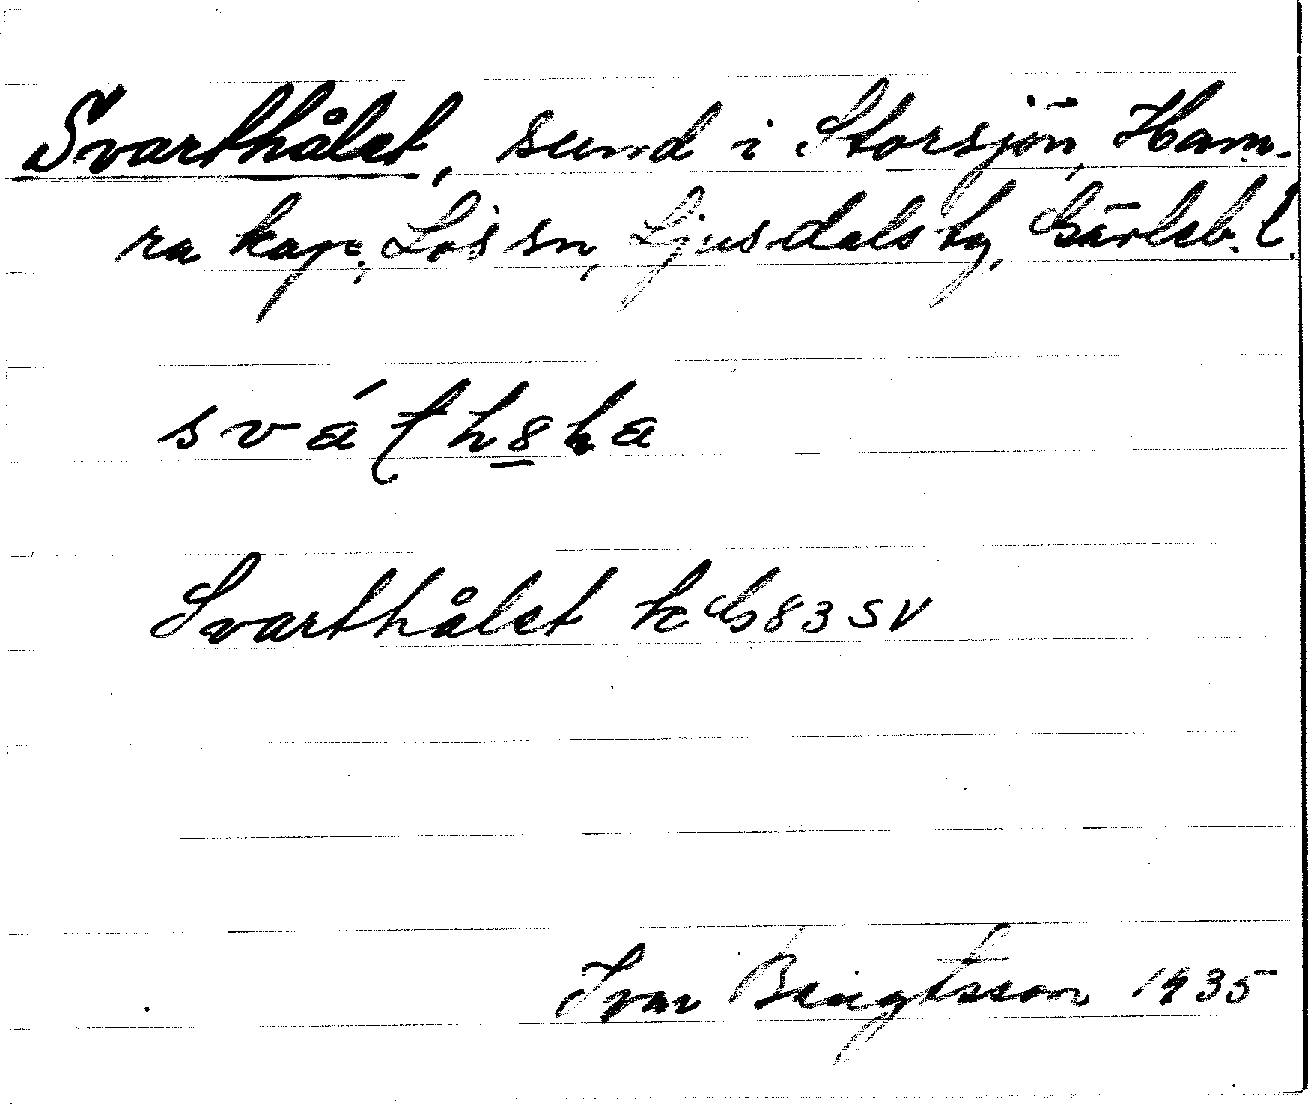 Svarthålet, sund i Storsjön, Ham-
ra kap., Los sn, Ljusdals tg, Gävleb. l.
Svarthålet k G83SV
Ivar Bengtsson 1935